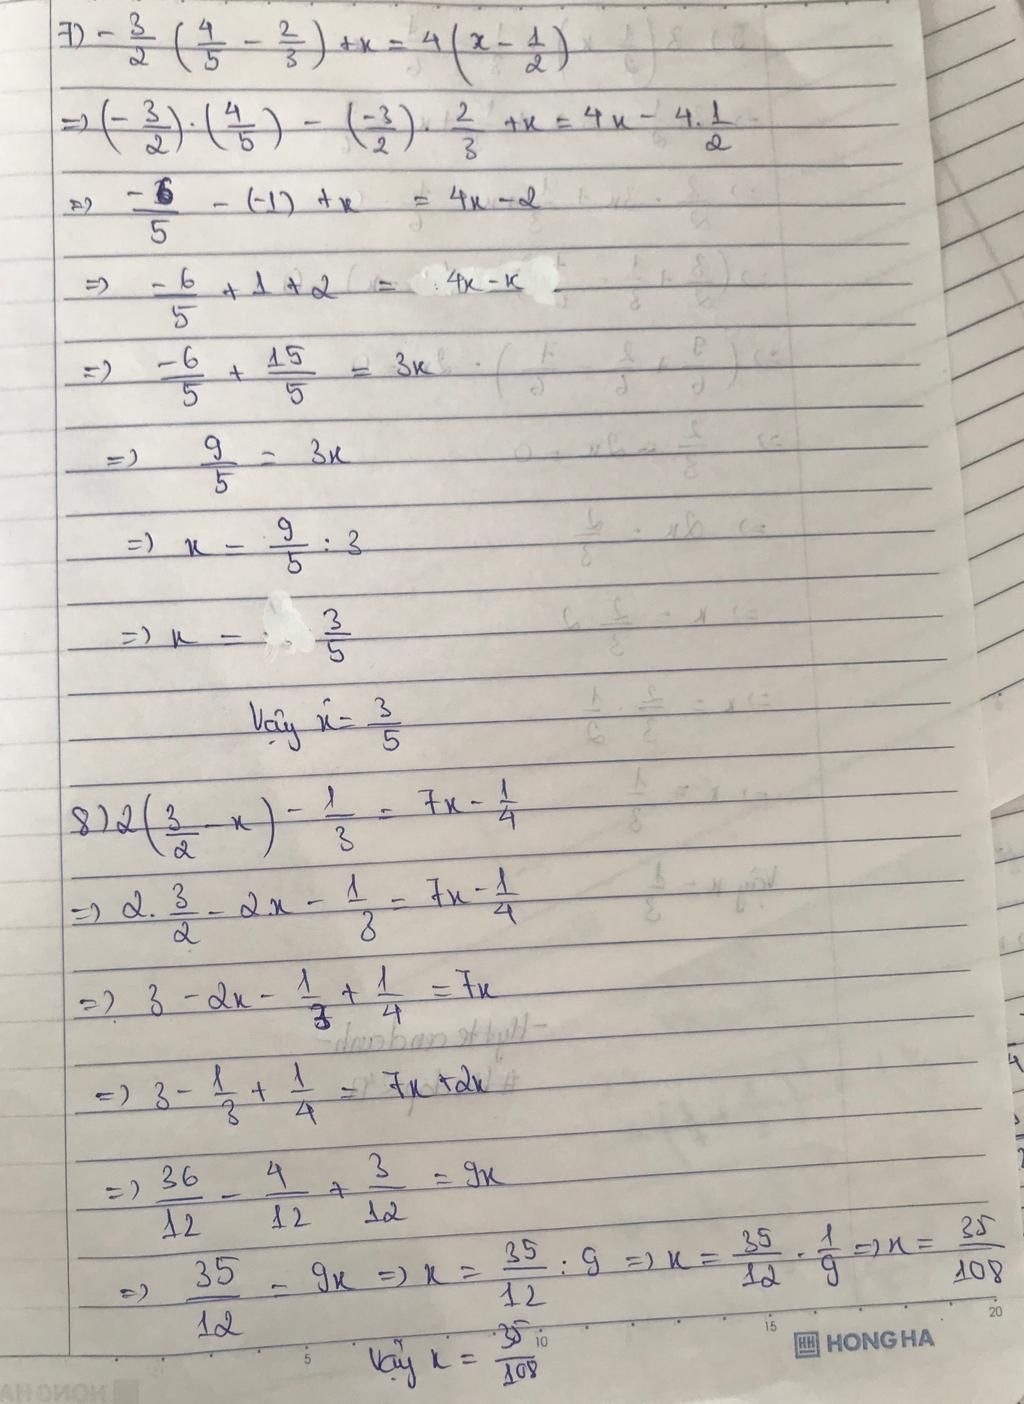 7) - 3/2 (4/5 - 2/3) + x = 4 (x - 1/2)
=> (- 3/2) . (4/5) - (-3/2) . 2/3 + x = 4x - 4. 1/2
=> -6/5 - (-1) + x = 4x - 2
=> -6/5 + 1 + 2 = 4x - x
=> -6/5 + 15/5 = 3x
=> 9/5 = 3x
=> x = 9/5 : 3
=> x = 3/5
Vậy x = 3/5
8) 2 (3/2 - x) - 1/3 = 7x - 1/4
=> 2. 3/2 - 2x - 1/3 = 7x - 1/4
=> 3 - 2x - 1/3 + 1/4 = 7x
=> 3 - 1/3 + 1/4 = 7x + 2x
=> 36/12 - 4/12 + 3/12 = 9x
=> 35/12 = 9x => x = 35/12 : 9 => x = 35/12 . 1/9 => x = 35/108
5 10 15 20
Vậy x = 35/108
HONG HA